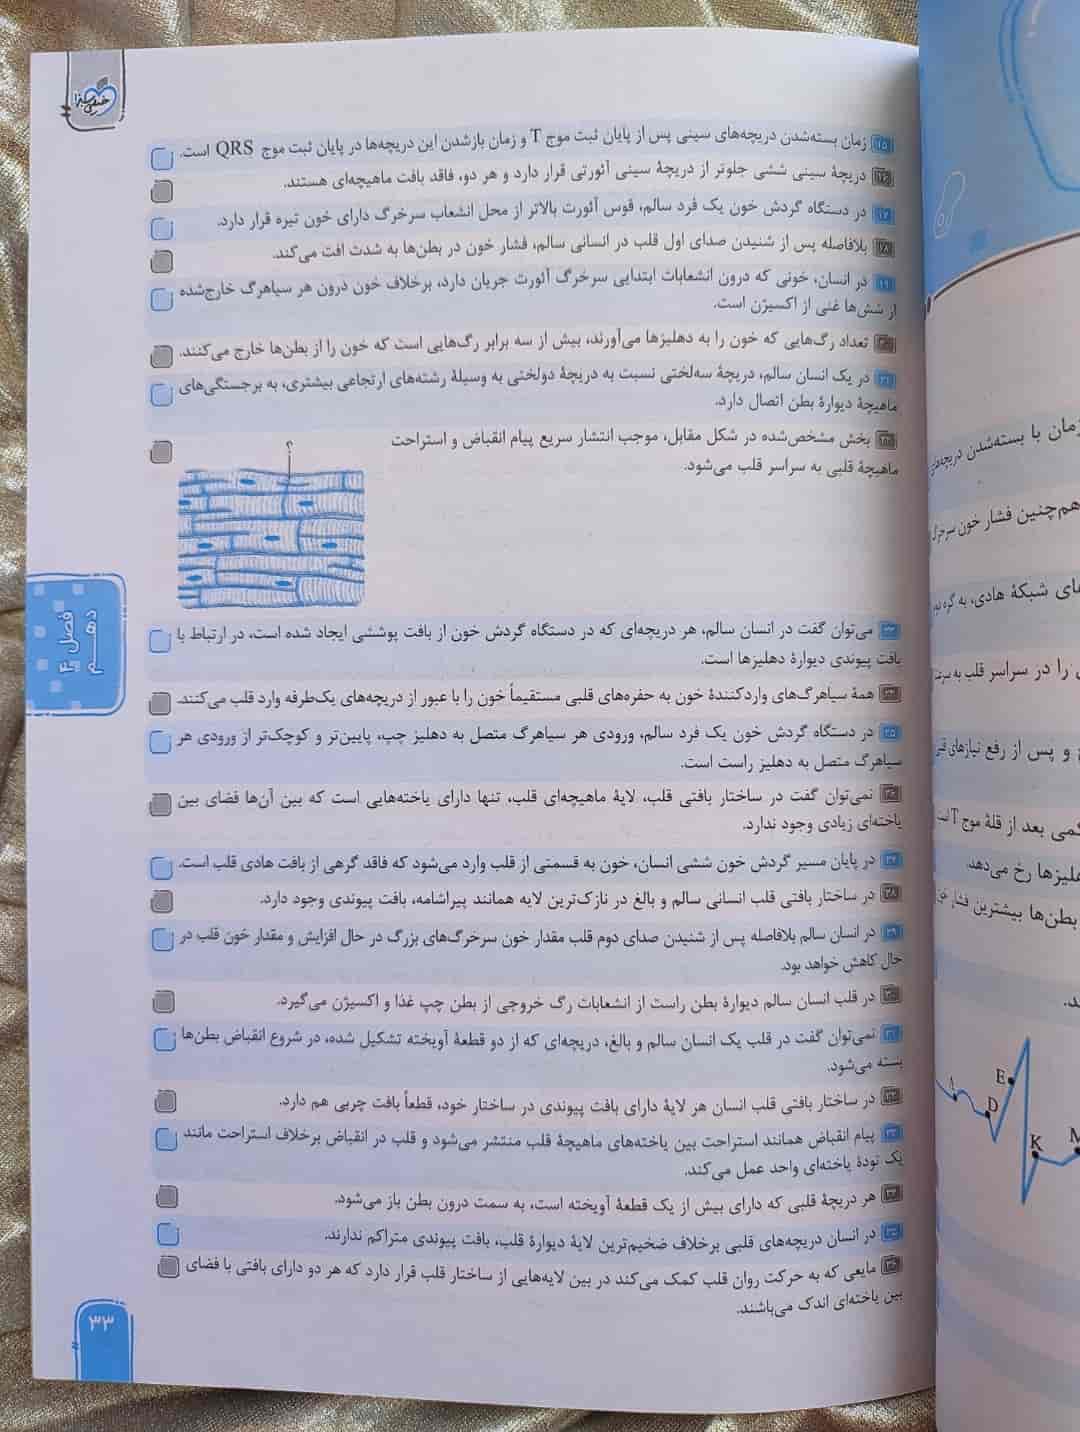 خیلی سبز
۱۵ زمان بسته‌شدن دریچه‌های سینی پس از پایان ثبت موج T و زمان بازشدن این دریچه‌ها در پایان ثبت موج QRS است.
۱۶ دریچهٔ سینی ششی جلوتر از دریچهٔ سینی آئورتی قرار دارد و هر دو، فاقد بافت ماهیچه‌ای هستند.
۱۷ در دستگاه گردش خون یک فرد سالم، قوس آئورت بالاتر از محل انشعاب سرخرگ دارای خون تیره قرار دارد.
۱۸ بلافاصله پس از شنیدن صدای اول قلب در انسانی سالم، فشار خون در بطن‌ها به شدت افت می‌کند.
۱۹ در انسان، خونی که درون انشعابات ابتدایی سرخرگ آئورت جریان دارد، برخلاف خون درون هر سیاهرگ خارج‌شده
از شش‌ها غنی از اکسیژن است.
۲۰ تعداد رگ‌هایی که خون را به دهلیزها می‌آورند، بیش از سه برابر رگ‌هایی است که خون را از بطن‌ها خارج می‌کنند.
۲۱ در یک انسان سالم، دریچهٔ سه‌لختی نسبت به دریچهٔ دولختی به وسیلهٔ رشته‌های ارتجاعی بیشتری، به برجستگی‌های
ماهیچهٔ دیوارهٔ بطن اتصال دارد.
۲۲ بخش مشخص‌شده در شکل مقابل، موجب انتشار سریع پیام انقباض و استراحت
ماهیچهٔ قلبی به سراسر قلب می‌شود.
؟
۲۳ می‌توان گفت در انسان سالم، هر دریچه‌ای که در دستگاه گردش خون از بافت پوششی ایجاد شده است، در ارتباط با
بافت پیوندی دیوارهٔ دهلیزها است.
۲۴ همهٔ سیاهرگ‌های واردکنندهٔ خون به حفره‌های قلبی مستقیماً خون را با عبور از دریچه‌های یک‌طرفه وارد قلب می‌کنند.
۲۵ در دستگاه گردش خون یک فرد سالم، ورودی هر سیاهرگ متصل به دهلیز چپ، پایین‌تر و کوچک‌تر از ورودی هر
سیاهرگ متصل به دهلیز راست است.
۲۶ نمی‌توان گفت در ساختار بافتی قلب، لایهٔ ماهیچه‌ای قلب، تنها دارای یاخته‌هایی است که بین آن‌ها فضای بین
یاخته‌ای زیادی وجود ندارد.
۲۷ در پایان مسیر گردش خون ششی انسان، خون به قسمتی از قلب وارد می‌شود که فاقد گرهی از بافت هادی قلب است.
۲۸ در ساختار بافتی قلب انسانی سالم و بالغ در نازک‌ترین لایه همانند پیراشامه، بافت پیوندی وجود دارد.
۲۹ در انسان سالم بلافاصله پس از شنیدن صدای دوم قلب مقدار خون سرخرگ‌های بزرگ در حال افزایش و مقدار خون قلب در
حال کاهش خواهد بود.
۳۰ در قلب انسان سالم دیوارهٔ بطن راست از انشعابات رگ خروجی از بطن چپ غذا و اکسیژن می‌گیرد.
۳۱ نمی‌توان گفت در قلب یک انسان سالم و بالغ، دریچه‌ای که از دو قطعهٔ آویخته تشکیل شده، در شروع انقباض بطن‌ها
بسته می‌شود.
۳۲ در ساختار بافتی قلب انسان هر لایهٔ دارای بافت پیوندی در ساختار خود، قطعاً بافت چربی هم دارد.
۳۳ پیام انقباض همانند استراحت بین یاخته‌های ماهیچهٔ قلب منتشر می‌شود و قلب در انقباض برخلاف استراحت مانند
یک تودهٔ یاخته‌ای واحد عمل می‌کند.
۳۴ هر دریچهٔ قلبی که دارای بیش از یک قطعهٔ آویخته است، به سمت درون بطن باز می‌شود.
۳۵ در انسان دریچه‌های قلبی برخلاف ضخیم‌ترین لایهٔ دیوارهٔ قلب، بافت پیوندی متراکم ندارند.
۳۶ مایعی که به حرکت روان قلب کمک می‌کند در بین لایه‌هایی از ساختار قلب قرار دارد که هر دو دارای بافتی با فضای
بین یاخته‌ای اندک می‌باشند.
فصل ۴
دهم
۳۳
زمان با بسته‌شدن دریچه‌های
هم‌چنین فشار خون سرخرگ
های شبکهٔ هادی، به گره
را در سراسر قلب به سرعت
و پس از رفع نیازهای
کمی بعد از قلهٔ موج T است
دهلیزها رخ می‌دهد.
بطن‌ها بیشترین فشار
ند.
A
D
E
K
M